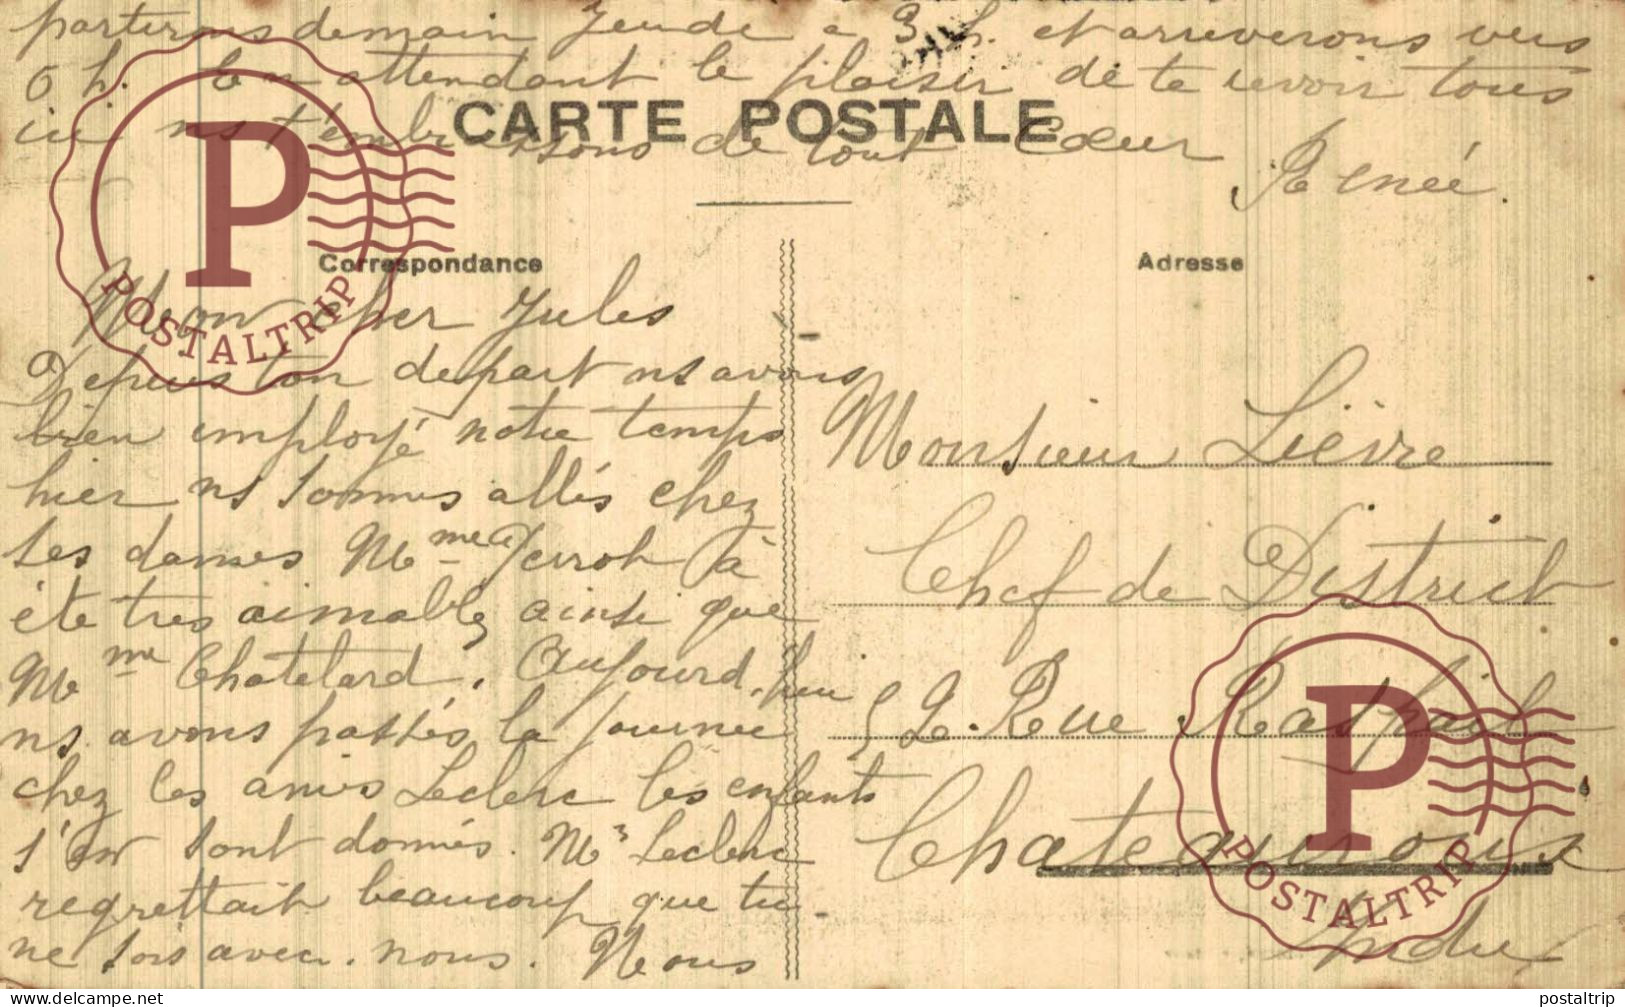 partirons demain Jeudi a 3 h. et arriverons vers
6 h. En attendant le plaisir de te revoir tous
ici ns t'embrassons de tout Cœur
Renée.
CARTE POSTALE
Correspondance
Adresse
Mon cher Jules
Depuis ton depart ns avons
bien employé notre temps
hier ns sommes allés chez
ses dames Mme à
éte tres aimable ainsi que
Mme Chatelard. Aujourd'hui
ns avons passés la journée
chez les amis Leclerc les enfants
s'en sont donnés. Mr Leclerc
regrettait beaucoup que tu
ne sois avec nous. Nous
Monsieur Lièvre
Chef de District
52 Rue Raspail
Chateauroux
Indre
P
POSTALTRIP
P
POSTALTRIP
www.delcampe.net
postaltrip